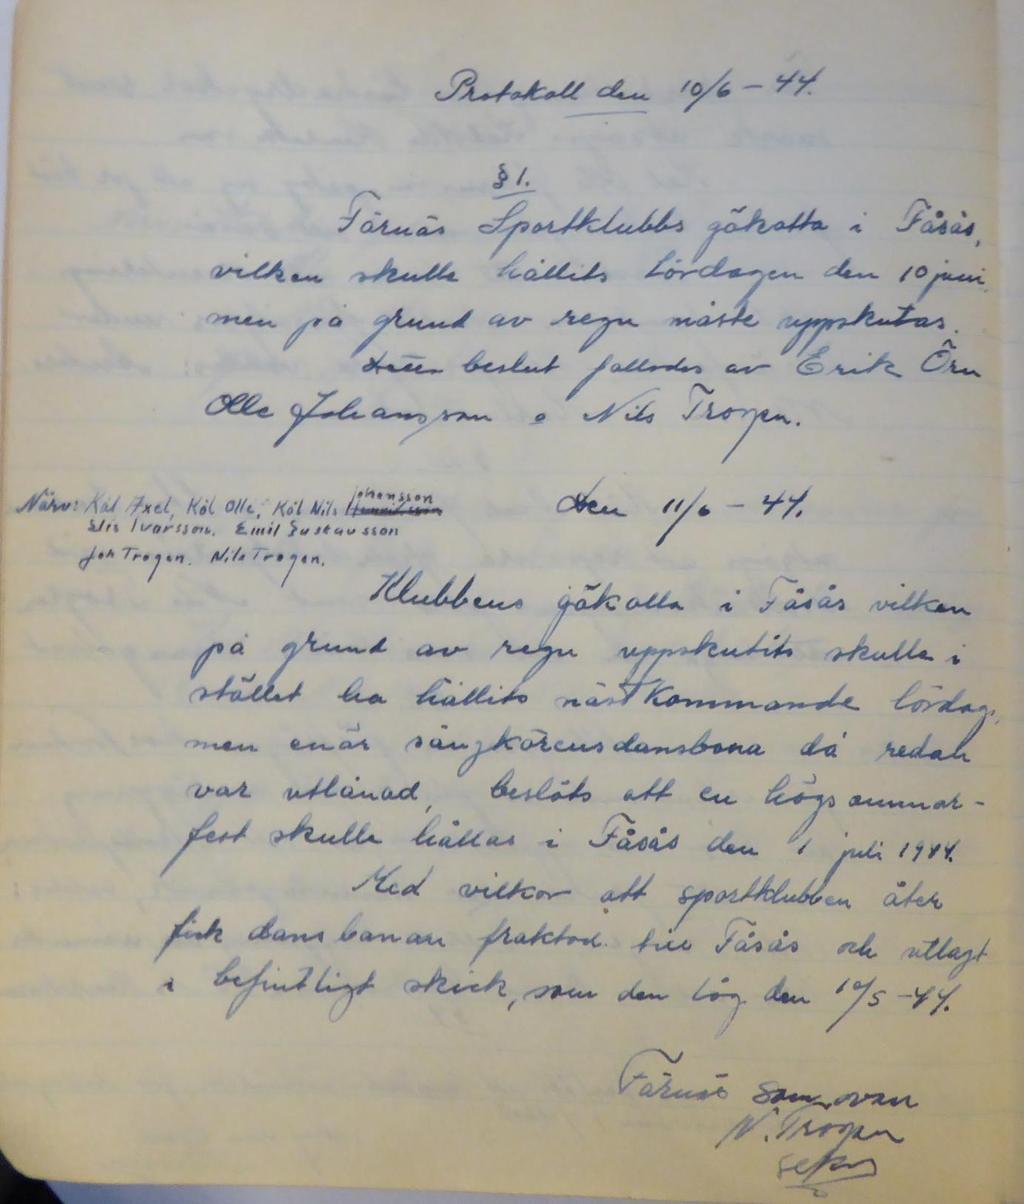 Protokoll den 10/6 – 44.
§ 1.
Färnäs Sportklubbs gökotta i Fåsås,
vilken skulle hållits lördagen den 10 juni
men på grund av regn måste uppskutas.
beslut fattades av Erik Örn
Olle Johansson o Nils Trogen.
Närv: Kål Axel, Kål Olle, Kål Nils Johansson
Elis Ivarsson. Emil Gustavsson
Joh Trogen. Nils Trogen.
Den 11/6 – 44.
Klubbens gökotta i Fåsås vilken
på grund av regn uppskutits skulle i
stället ha hållits nästkommande lördag,
men enär sångkörens dansbana då redan
var utlånad, beslöts att en högsommar-
fest skulle hållas i Fåsås den 1 juli 1944.
Med vilkor att sportklubben åter
fick dansbanan fraktad till Fåsås och utlagt
i befintligt skick, som den låg den 10/5 – 44.
Färnäs som ovan
N. Trogen
sekr